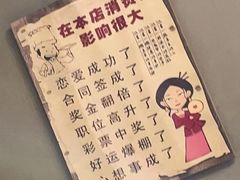 在本店消费
影响很大
恋爱成功了
合同签成了
奖金翻倍了
职位高升了
彩票中奖了
好运爆棚了
想事成了